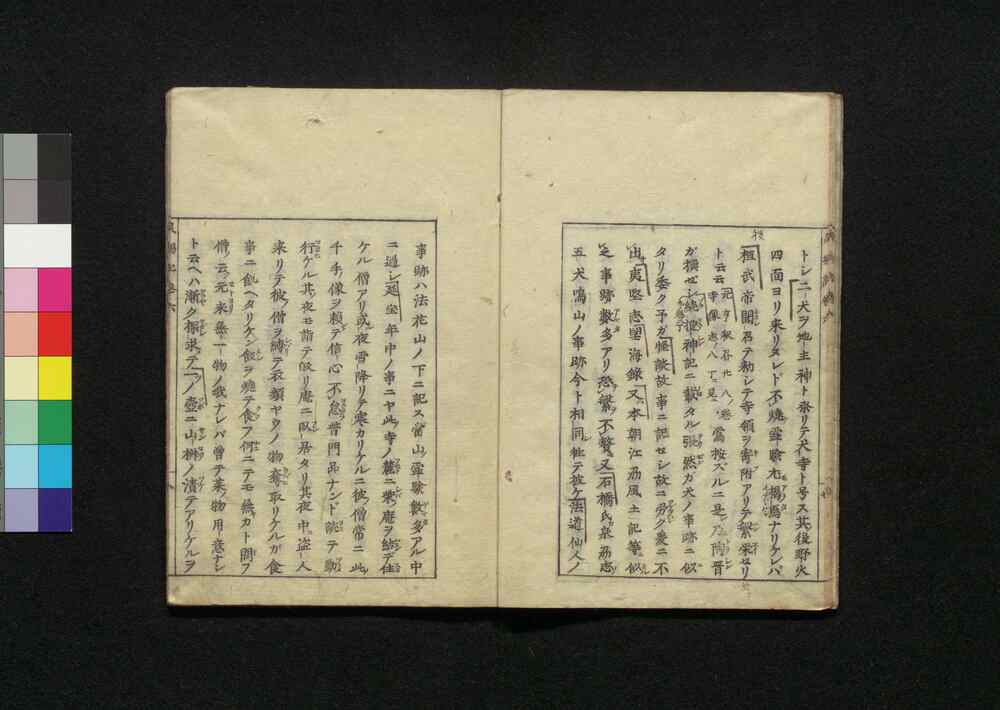 トシ二犬ヲ地主神ト祭リテ犬寺ト号ス其後野火
四面ヨリ来リタレドモ不燒霊驗尤掲焉ナリケレバ
桓武帝聞召テ勅シテ寺領ヲ寄附アリテ繁栄セリ
ト云云 元亨釈书廿八ノ巻寺像志ノ八丁見 當按ズルニ是乃陶晋
ガ撰セシ続捜神記ニ載タル張然ガ犬ノ事跡ニ似
タリ委ク予ガ怪談故事ニ記セシ故ニ労ク爰ニ不
出夷堅志聖海録又本朝江刕風土記等ニ似
之事跡数多アリ恐繁不贅又石橋氏泉刕志
五犬鳴山ノ事跡今ト相同粧テ彼ケ法道仙人ノ
事跡ハ法花山ノ下ニ記ス當山霊驗数多アル中
ニ過シ延宝年中ノ事ニヤ此寺ノ麓ニ柴庵ヲ結テ住
ケル僧アリ或夜雪降リテ寒カリケルニ彼僧常ニ此
千手ノ像ヲ頼テ信心不怠普門品ナンド誦テ勤
行ケル其夜モ詣テ皈リ庵ニ臥居タリ其夜中盗人
来リテ彼僧ヲ縛テ衣類ヤウノ物奪取リケルガ食
事ニ飢ヘタリケン飯ヲ焼テ食フ何ニテモ無カト問フ
僧云元来無一物ノ我ナレバ曽テ菜物用意ナシ
ト云ヘハ漸ク探求テ一ツノ壺ニ山椒ノ漬テアリケルヲ